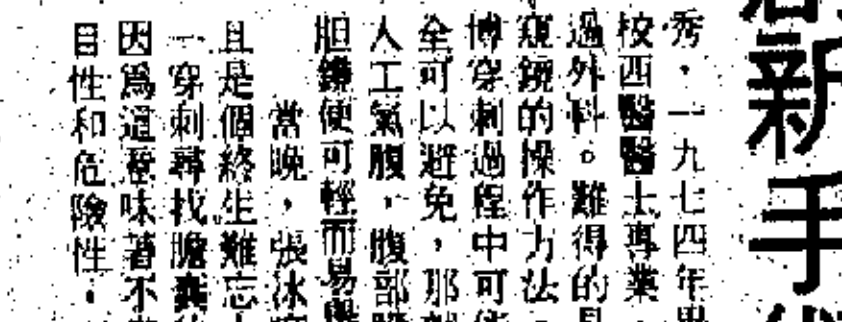 新手
秀，一九七四年畢
校西醫醫士專業，
過外科。難得的是
窺鏡的操作方法，
博穿刺過程中可
全可以避免，那
人工氣腹，腹部
胆鏡便可輕而易
當晚，張冰
且是個終生難忘
一穿刺尋找膽囊
因爲這意味著不
目性和危險性。